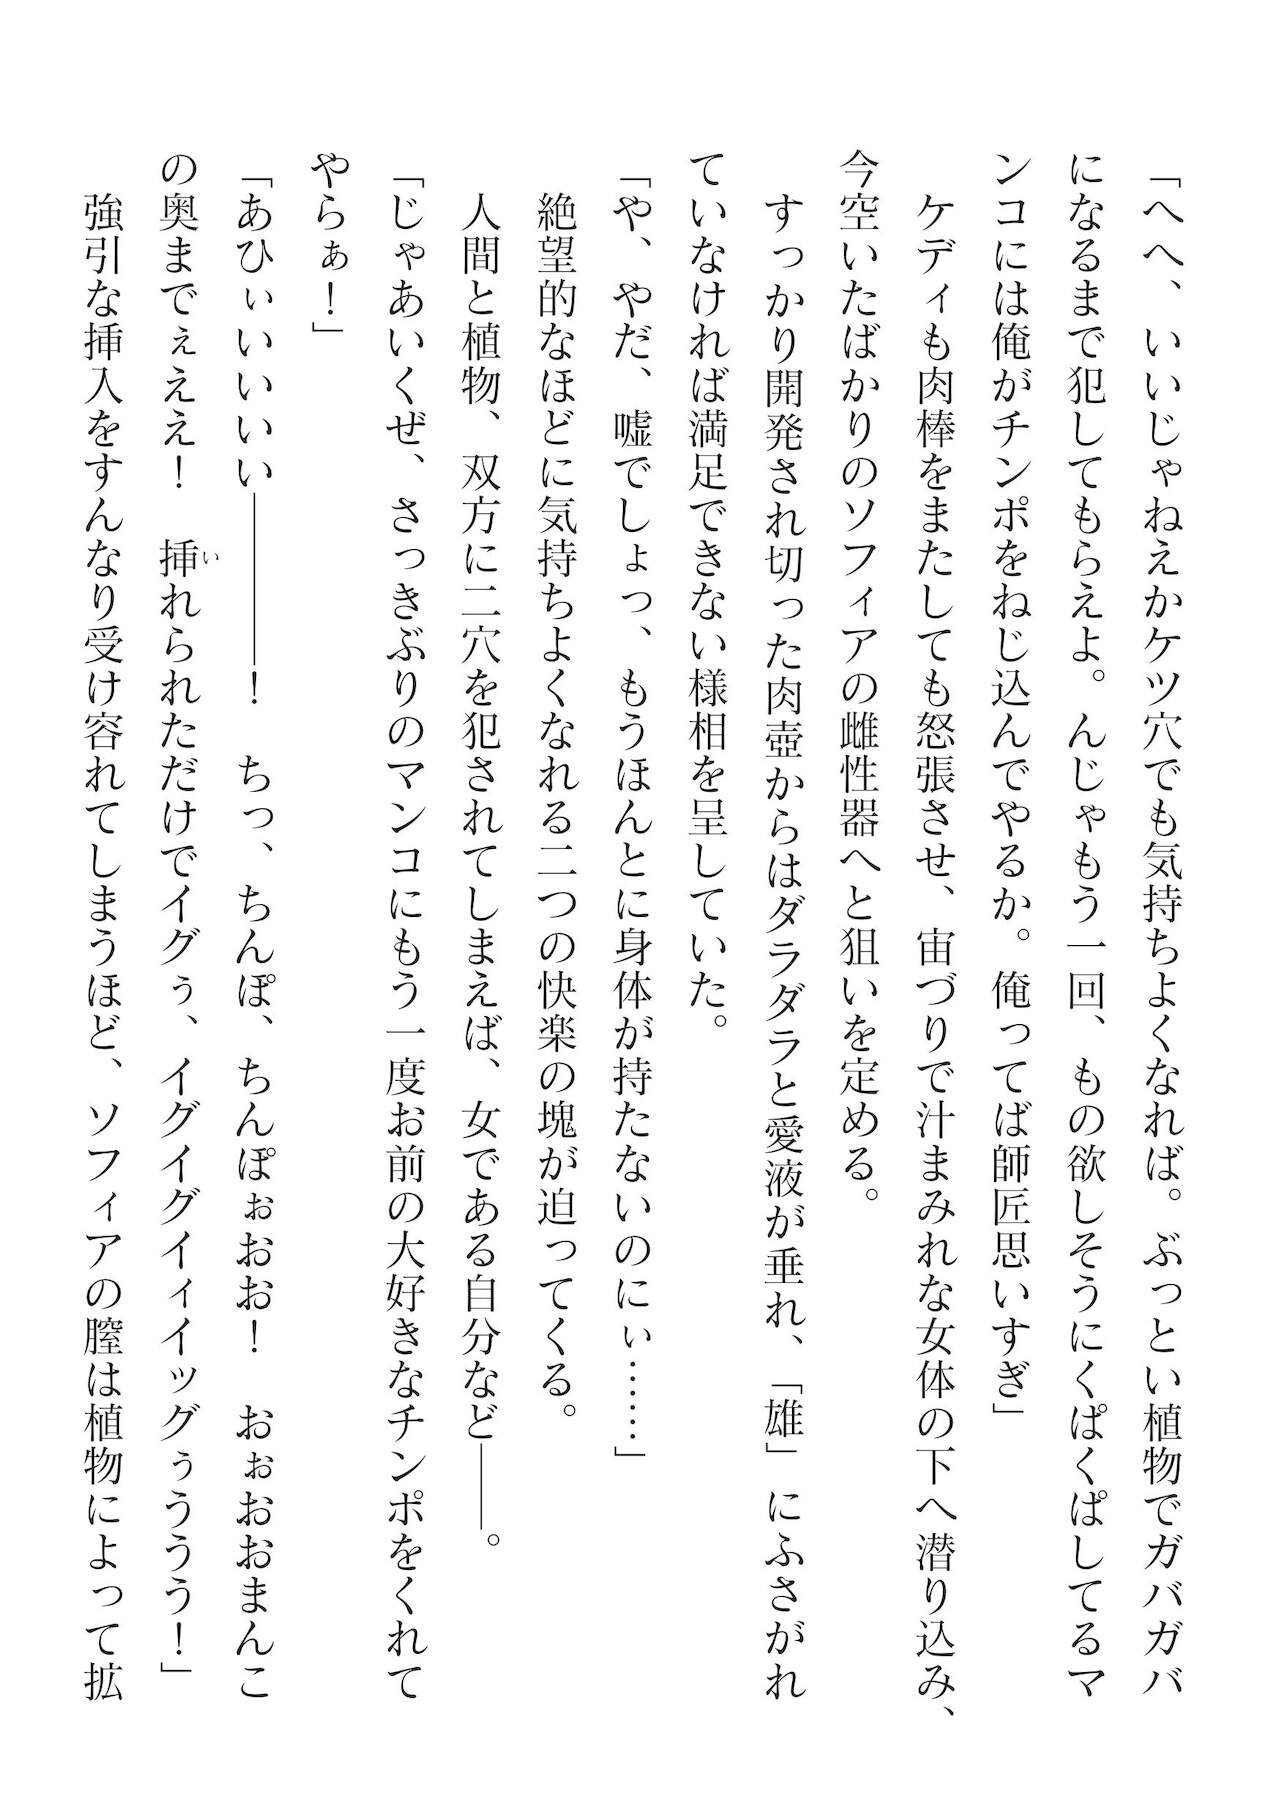 「へへ、いいじゃねえかケツ穴でも気持ちよくなれば。ぶっとい植物でガバガバ
になるまで犯してもらえよ。んじゃもう一回、もの欲しそうにくぱくぱしてるマ
ンコには俺がチンポをねじ込んでやるか。俺ってば師匠思いすぎ」
　ケディも肉棒をまたしても怒張させ、宙づりで汁まみれな女体の下へ潜り込み、
今空いたばかりのソフィアの雌性器へと狙いを定める。
　すっかり開発され切った肉壺からはダラダラと愛液が垂れ、「雄」にふさがれ
ていなければ満足できない様相を呈していた。
「や、やだ、嘘でしょっ、もうほんとに身体が持たないのにぃ……」
　絶望的なほどに気持ちよくなれる二つの快楽の塊が迫ってくる。
　人間と植物、双方に二穴を犯されてしまえば、女である自分など――。
「じゃあいくぜ、さっきぶりのマンコにもう一度お前の大好きなチンポをくれて
やらぁ！」
「あひぃいいいい――――！　ちっ、ちんぽ、ちんぽぉおお！　おぉおおまんこ
の奥までぇええ！　挿いれられただけでイグぅ、イグイグイィイッグぅううう！」
　強引な挿入をすんなり受け容れてしまうほど、ソフィアの膣は植物によって拡